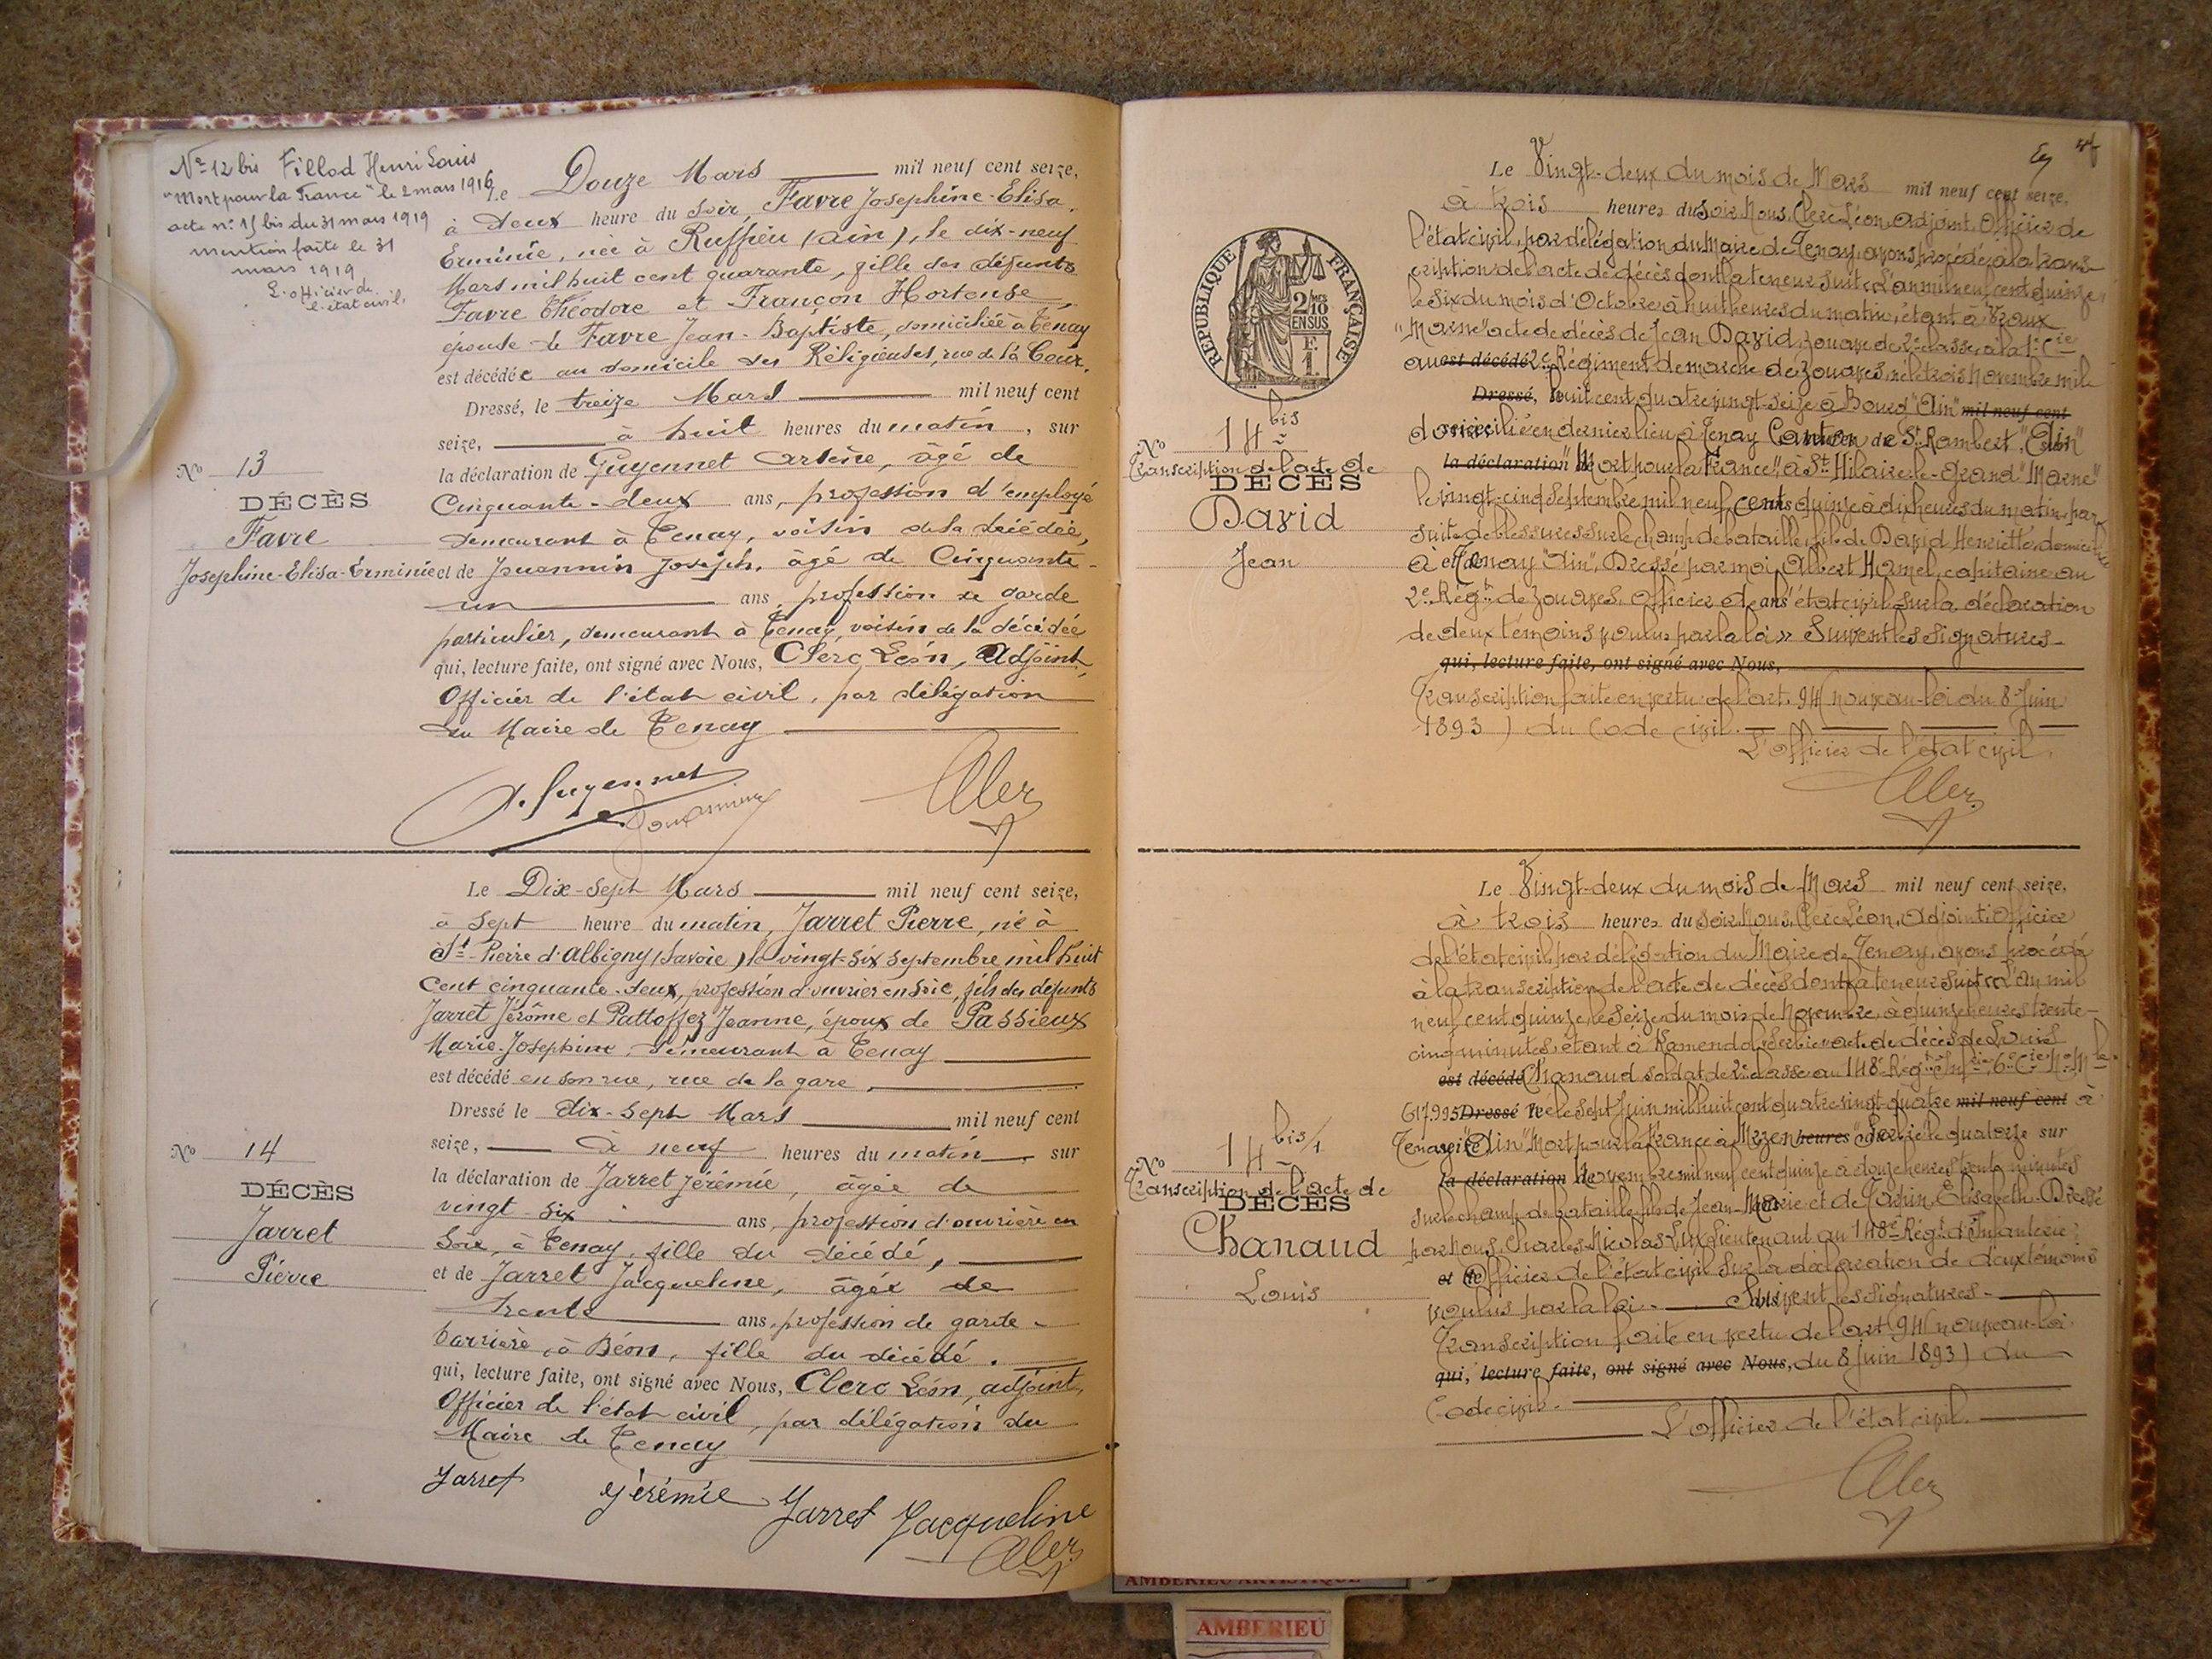 Nº 12 bis Fillod Henri Louis
"Mort pour la France" le 2 mars 1916
acte nº 15 bis du 31 mars 1919
mention faite le 31
mars 1919
L'officier de
l'état civil,
Le Douze Mars mil neuf cent seize,
à deux heure du soir, Favre Josephine-Elisa
Erminie, née à Ruffieu (Ain), le dix-neuf
Mars mil huit cent quarante, fille des défunts
Favre Théodore et Françon Hortense,
épouse de Favre Jean-Baptiste, domiciliée à Tenay
est décédée au domicile des Réligieuses, rue de la Cour.
Dressé, le treize Mars mil neuf cent
seize, à huit heures du matin, sur
la déclaration de Guyennet Arsène, âgé de
Cinquante-deux ans, profession d'employé
demeurant à Tenay, voisin de la décédée,
et de Jouannin Joseph, âgé de Cinquante-
un ans, profession de garde
particulier, demeurant à Tenay, voisin de la décédée
qui, lecture faite, ont signé avec Nous, Clerc Léon, Adjoint,
Officier de l'état civil, par délégation
du Maire de Tenay
A. Guyennet Clerc
No 13
DÉCÈS
Favre
Josephine-Elisa-Erminie
Le Dix-Sept Mars mil neuf cent seize,
à sept heure du matin, Jarret Pierre, né à
St-Pierre d'Albigny (Savoie) le vingt-six septembre mil huit
cent cinquante-deux, profession d'ouvrier en soie, fils des défunts
Jarret Jérôme et Pattoffez Jeanne, époux de Passieux
Marie-Joséphine, demeurant à Tenay
est décédé en son rue, rue de la gare,
Dressé le dix-sept Mars mil neuf cent
seize, à neuf heures du matin, sur
la déclaration de Jarret Jérémie, âgée de
vingt-six ans, profession d'ouvrière en
Soie, à Tenay, fille du décédé,
et de Jarret Jacqueline, âgée de
trente ans, profession de garde-
barrière, à Béon, fille du décédé.
qui, lecture faite, ont signé avec Nous, Clerc Léon, adjoint,
Officier de l'état civil, par délégation du
Maire de Tenay
Jarret Jérémie Jarret Jacqueline
Clerc
No 14
DÉCÈS
Jarret
Pierre
RÉPUBLIQUE FRANÇAISE
2/10 EN SUS
Le Vingt-deux du mois de Mars mil neuf cent seize,
à trois heures du soir Nous, Clerc Léon, adjoint Officier de
l'état civil, par délégation du Maire de Tenay, avons procédé à la trans-
cription de l'acte de décès dont la teneur suit: "L'an mil neuf cent quinze
le six du mois d'Octobre à huit heures du matin, étant à Vraux
"Marne" acte de décès de Jean David, zouave de 2e classe, à la 1e Cie
au est décédé 2e Régiment de marche de Zouaves, né le trois Novembre mil
Dressé, huit cent quatre vingt-seize à Bourg "Ain" mil neuf cent
domicilié en dernier lieu à Tenay Canton de St Rambert "Ain"
la déclaration "Mort pour la France" à St Hilaire-le-Grand "Marne"
le vingt-cinq Septembre mil neuf cent quinze à dix heures du matin, par
suite de blessures sur le champ de bataille, fils de David Henriette domiciliée
à Tenay "Ain". Dressé par moi, Albert Hamel, capitaine au
2e Régt de Zouaves, Officier de l'état civil, sur la déclaration
de deux témoins voulus par la loi" Suivent les signatures-
qui, lecture faite, ont signé avec Nous,
Transcription faite en vertu de l'art. 94 (nouveau-loi du 8 Juin
1893) du Code Civil.
L'officier de l'état civil,
Clerc
No 14 bis
Transcription de l'acte de
DÉCÈS
David
Jean
Le Vingt-deux du mois de Mars mil neuf cent seize.
à trois heures du soir, Nous, Clerc Léon, adjoint, Officier
de l'état civil, par délégation du Maire de Tenay, avons procédé
à la transcription de l'acte de décès dont la teneur suit: "L'an mil
neuf cent quinze, le seize du mois de Novembre, à quinze heures trente-
cinq minutes, étant à Kamendol "Serbie" acte de décès de Louis
est décédé Chanaud, soldat de 2e classe au 148e Régt d'Infrie 6e Cie No Mle
617.995 Dressé né le sept Juin mil huit cent quatre vingt quatre mil neuf cent à
Tenay "Ain" Mort pour la France à Mrzen heures "Serbie" le quatorze sur
la déclaration Novembre mil neuf cent quinze à douze heures trente minutes
sur le champ de bataille, fils de Jean-Marie et de Élisabeth. Dressé
par nous, Charles Nicolas Lux, Lieutenant au 148e Régt d'Infanterie,
et de Officier de l'état civil sur la déclaration de deux témoins
voulus par la loi. Suivent les signatures.
Transcription faite en vertu de l'art 94 (nouveau-loi
qui, lecture faite, ont signé avec Nous, du 8 Juin 1893) du
Code civil.
L'officier de l'état civil.
Clerc
No 14 bis/1
Transcription de l'acte de
DÉCÈS
Chanaud
Louis
AMBERIEU ARTISTIQUE
AMBERIEU